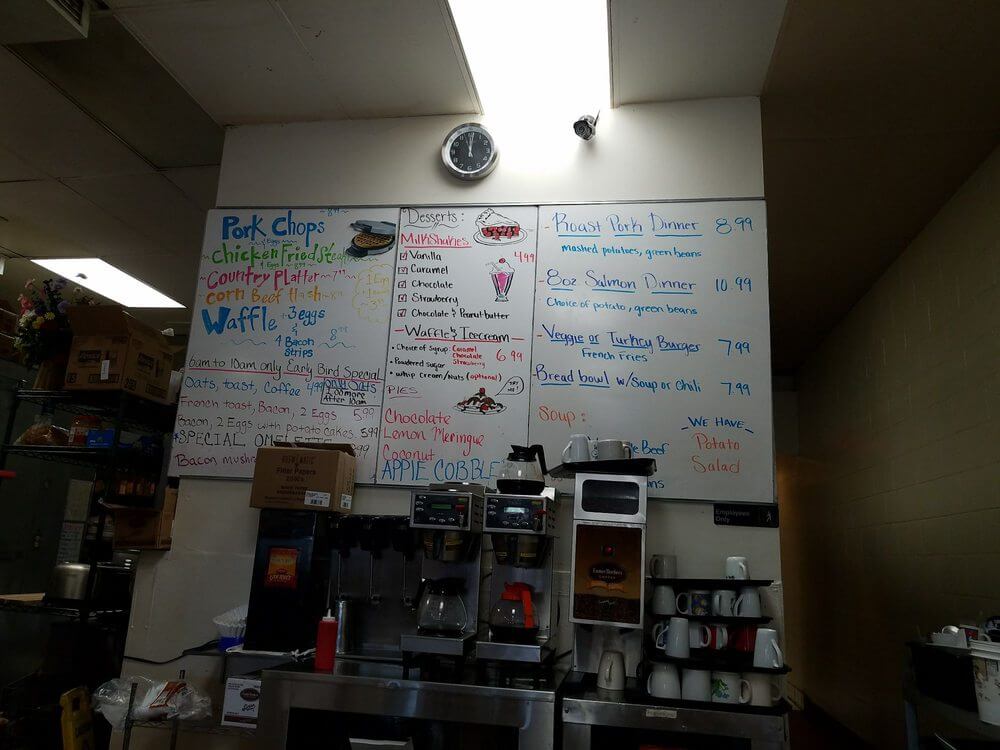 Pork Chops ~8⁹⁹~
& Eggs
Chicken Fried Steak
& Eggs ~8⁹⁹~
~Country Platter~7
Corn Beef Hash~8
1 Egg
Waffle 3 eggs
&
4 Bacon
Strips
8⁹⁹
6am to 10am only Early Bird Special
Oats, toast, Coffee 4.99
Only Oats
After 10am
French toast, Bacon, 2 Eggs 5.99
Bacon, 2 Eggs with potato cakes. 5.99
*SPECIAL OMELETTE
Bacon
Desserts:
MilkShakes
Vanilla 4.99
Caramel
Chocolate
Strawberry
Chocolate & Peanut-butter
— Waffle & Icecream —
• Choice of syrup: Caramel
Chocolate
Strawberry
6.99
• Powdered sugar
• Whip Cream/Nuts (optional)
TRY ME!
PIES
Chocolate
Lemon Meringue
Coconut
APPLE COBBLE
- Roast Pork Dinner 8.99
mashed potatoes, green beans
- 8oz Salmon Dinner 10.99
Choice of potato, green beans
- Veggie or Turkey Burger 7.99
French Fries
- Bread bowl w/Soup or Chili 7.99
Soup:
Beef
WE HAVE
Potato
Salad
Filter Papers
Employees
Only